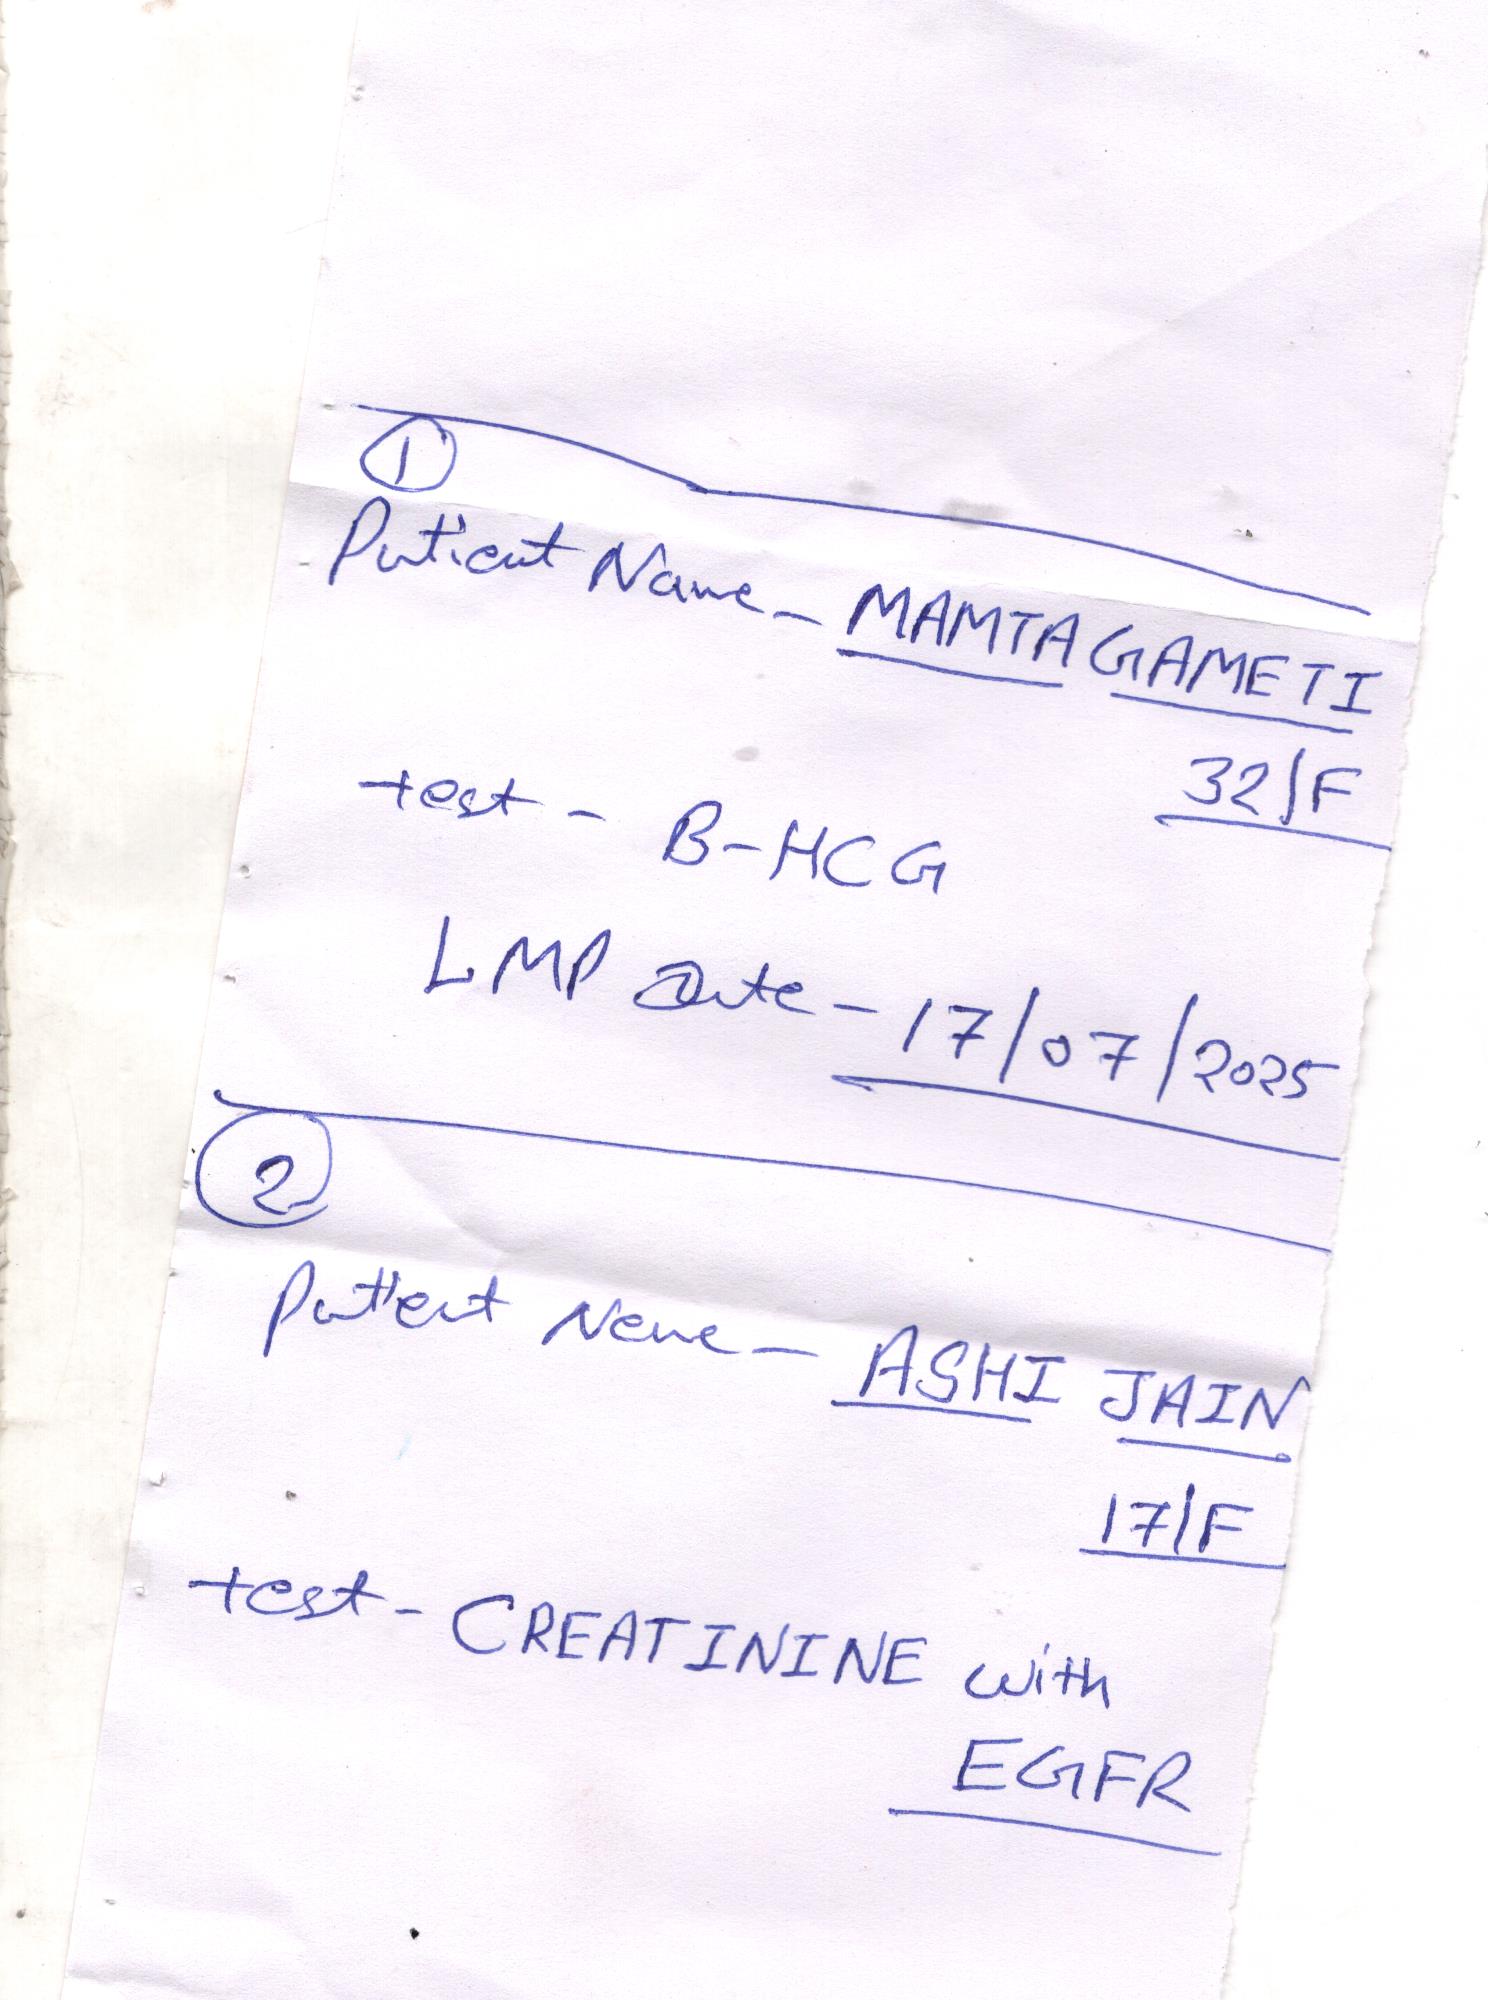 1
Patient Name - MAMTA GAMETI
32/F
test - B-HCG
LMP Date - 17/07/2025
2
Patient Name - ASHI JAIN
17/F
test - CREATININE with
EGFR